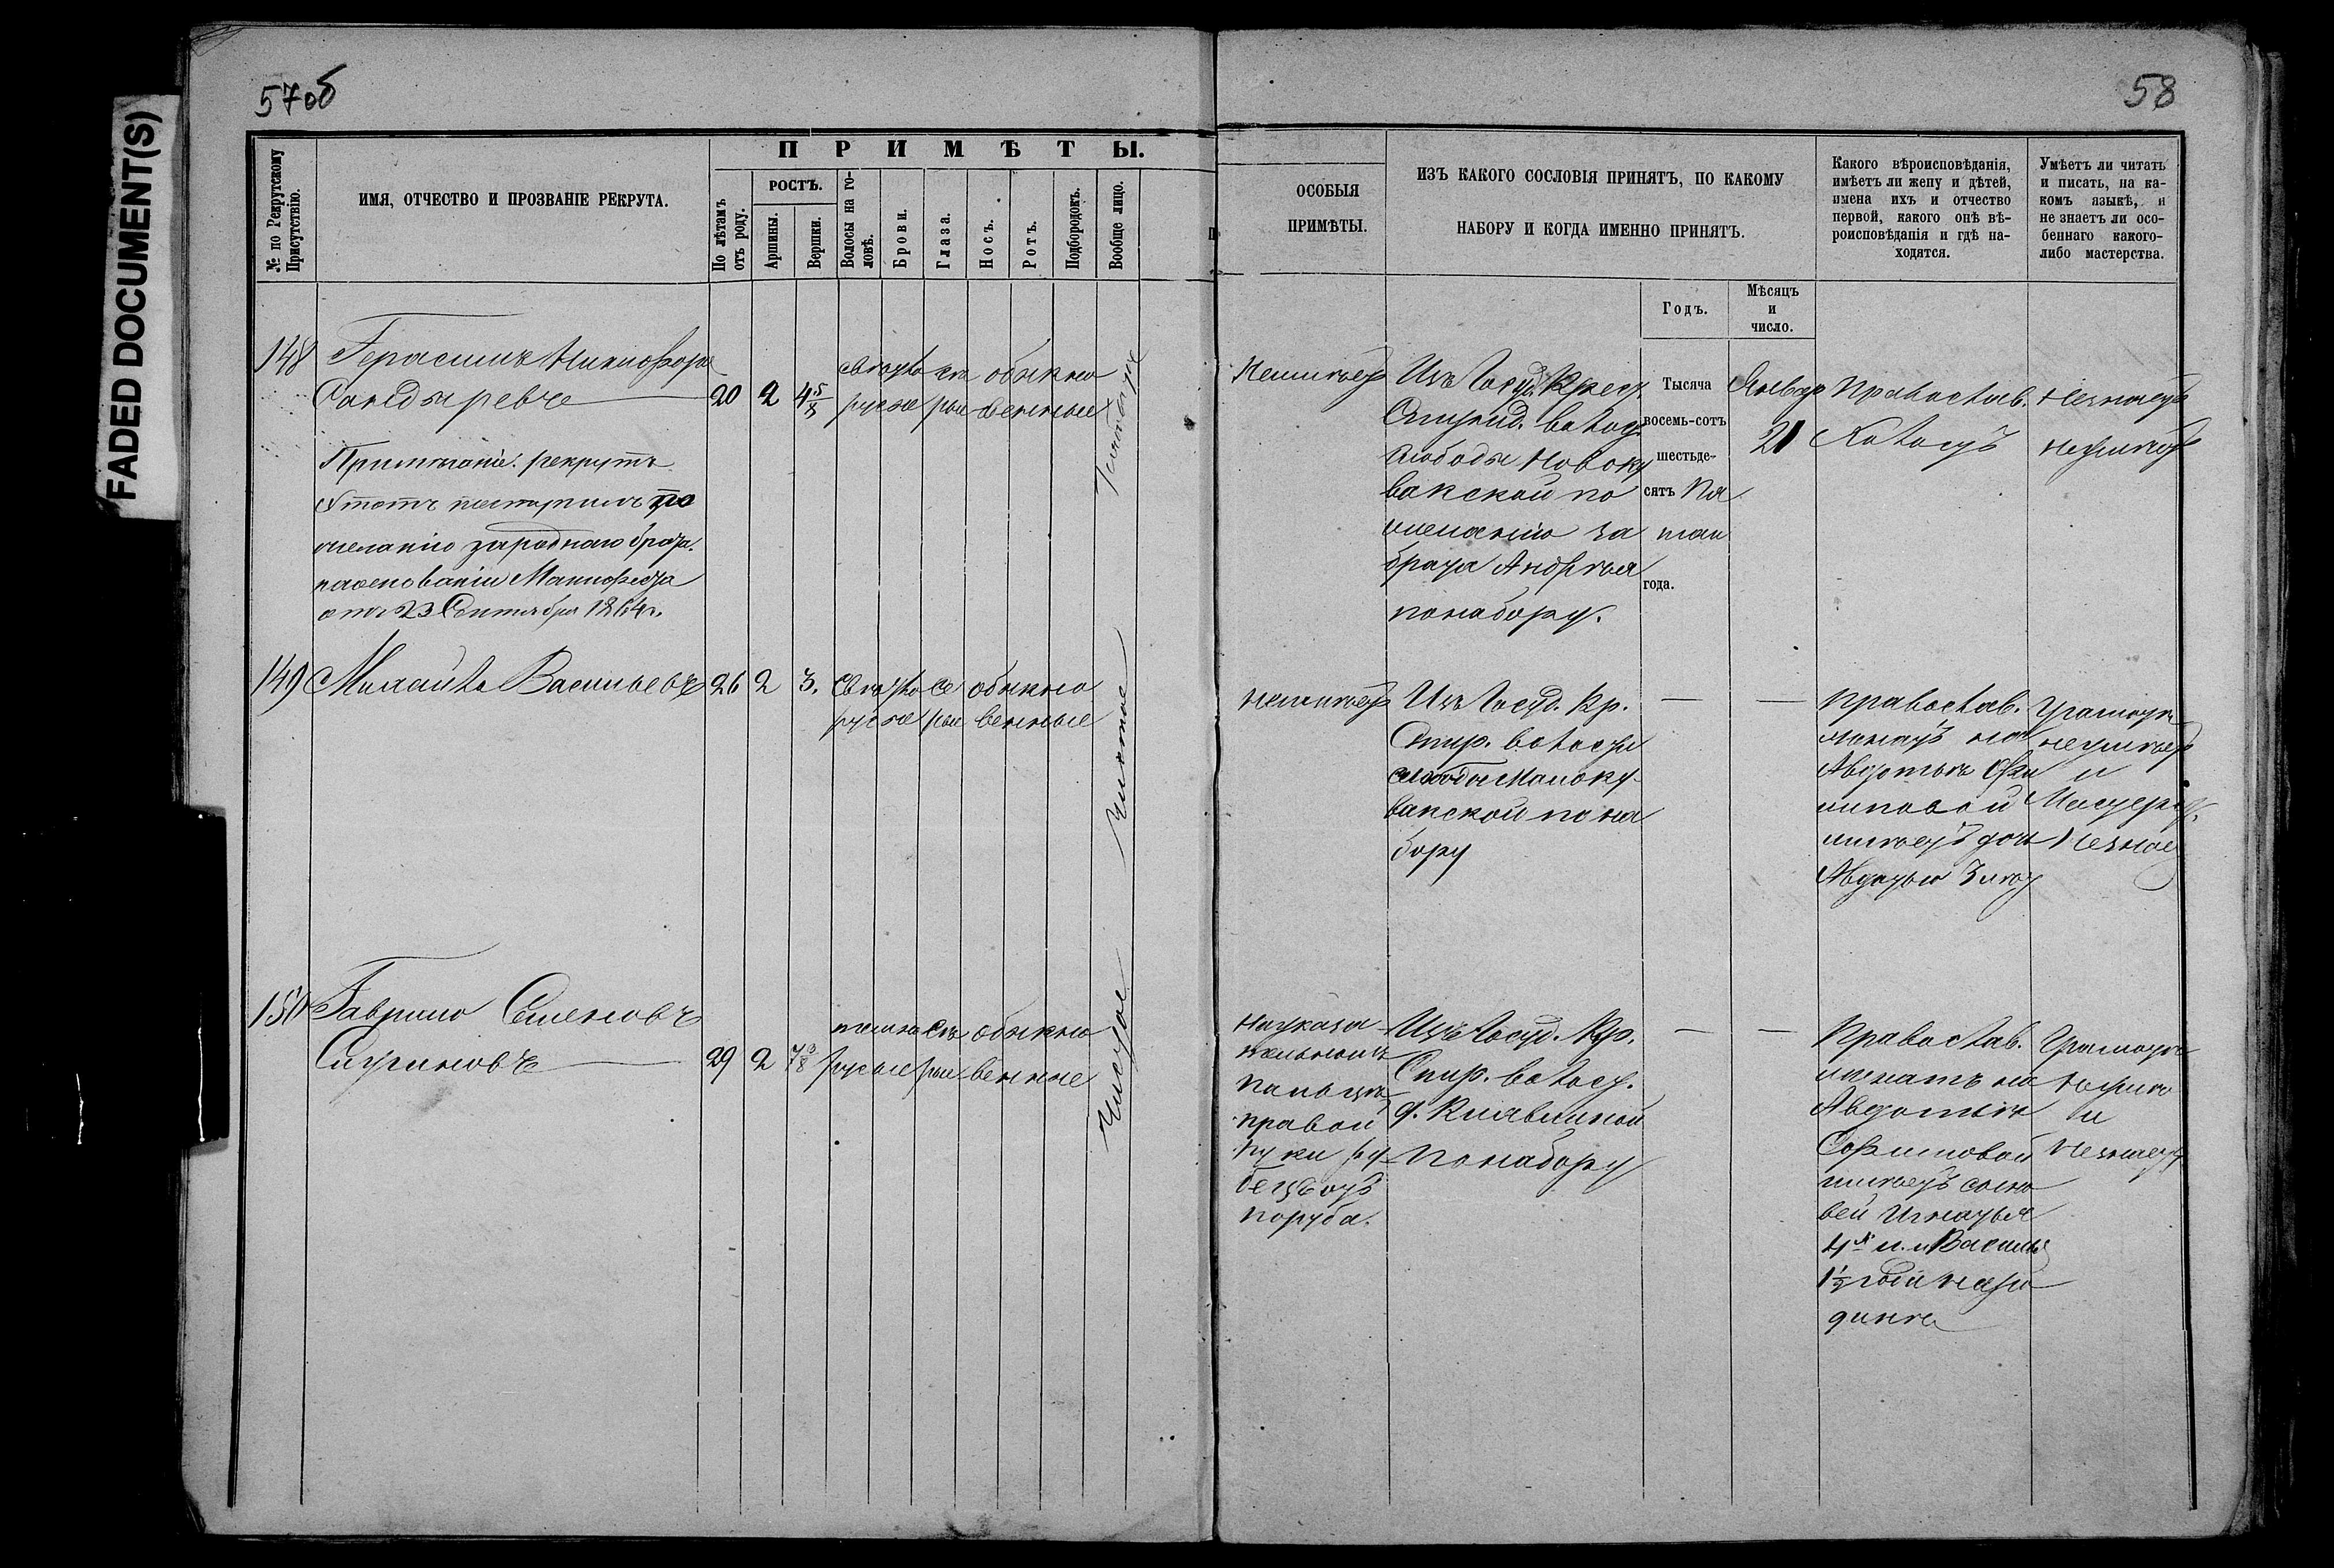 FADED DOCUMENT(S)
57об
58
№ по Рекрутскому
Присутствію.
ИМЯ, ОТЧЕСТВО И ПРОЗВАНІЕ РЕКРУТА.
ПРИМѢТЫ.
По лѣтамъ
отъ роду.
РОСТЪ.
Аршины.
Вершки.
Волосы на го-
ловѣ.
Брови.
Глаза.
Носъ.
Ротъ.
Подбородокъ.
Вообще лицо.
ОСОБЫЯ
ПРИМѢТЫ.
ИЗЪ КАКОГО СОСЛОВІЯ ПРИНЯТЪ, ПО КАКОМУ
НАБОРУ И КОГДА ИМЕННО ПРИНЯТЪ.
Годъ.
Мѣсяцъ
и
число.
Какого вѣроисповѣданія,
имѣетъ ли жену и дѣтей,
имена ихъ и отчество
первой, какого онѣ вѣ-
роисповѣданія и гдѣ на-
ходятся.
Умѣетъ ли читать
и писать, на ка-
комъ языкѣ, и
не знаетъ ли осо-
беннаго какого-
либо мастерства.
148
Герасимъ Никифоро
Сандыревъ
20 2 4 5/8
свѣтло
русые
сѣ
рые
обыкно
венные
Примѣчаніе: рекрутъ
этотъ поступилъ по
желанію за роднаго брата
на основаніи Манифеста
отъ 23 Сентября 1864 г.
Неимѣетъ
Изъ Госуд. Крест.
волост.
слободы Новоку
вакской по
желанію за
брата Андрея
по набору.
Тысяча
восемь-сотъ
шестьде-
сятъ пя
таго
года.
Январ
21
Православ.
Холостъ
Незнаетъ
неумѣетъ
149
Михайла Васильевъ
26 2 3.
свѣтло
русые
сѣ
рые
обыкно
венные
чистое
неимѣетъ
Изъ Госуд. Кр.
волости
слободы Малоку-
вакской по на
бору
— —
Православ.
женатъ на
Авдотьѣ Фи
липовой
имѣетъ дочь
Авдотью 3 лѣт
Грамотѣ
неумѣетъ
и
Мастерст.
Незнает
150
Гаврило Семеновъ
29 2 7 3/8
темно
русые
сѣ
рые
обыкно
венные
Чистое
На указа
тельномъ
пальцѣ
правой
руки ру
бецъ отъ
поруба.
Изъ Госуд. Кр.
волост.
д. Клявлиной
по набору
— —
Православ.
женатъ на
Авдотьѣ
имѣетъ сыно
вей Игнатья
4х л. и Василья
1½ года на ро
динѣ
Грамотѣ
неумѣе
и
Незнает